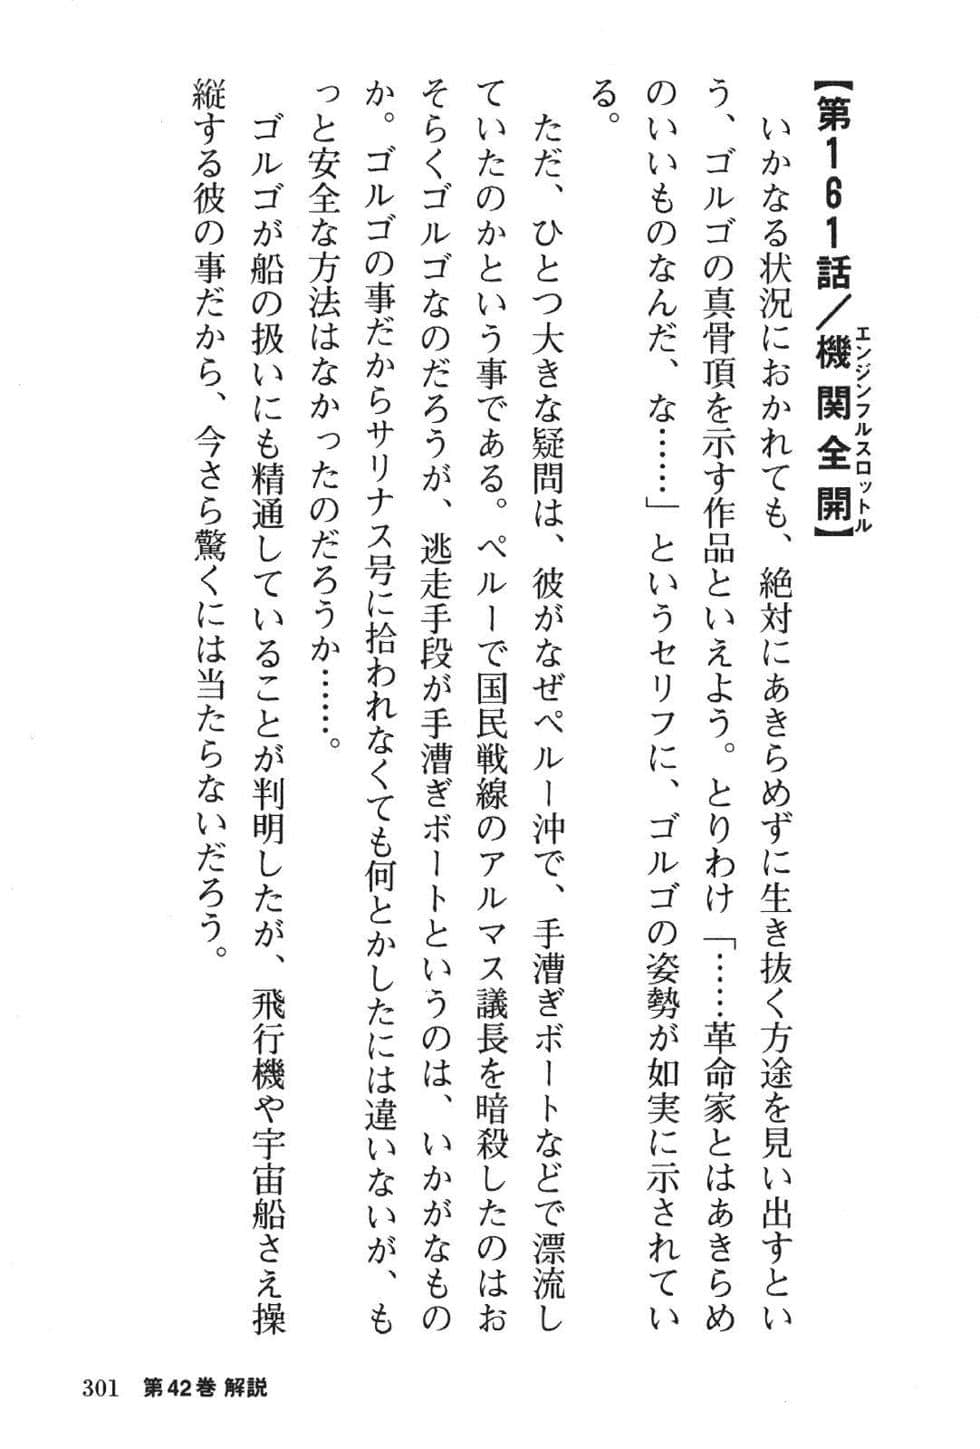 【第161話／機関全開】
エンジンフルスロットル
　いかなる状況におかれても、絶対にあきらめずに生き抜く方途を見い出すとい
う、ゴルゴの真骨頂を示す作品といえよう。とりわけ「……革命家とはあきらめ
のいいものなんだ、な……」というセリフに、ゴルゴの姿勢が如実に示されてい
る。
　ただ、ひとつ大きな疑問は、彼がなぜペルー沖で、手漕ぎボートなどで漂流し
ていたのかという事である。ペルーで国民戦線のアルマス議長を暗殺したのはお
そらくゴルゴなのだろうが、逃走手段が手漕ぎボートというのは、いかがなもの
か。ゴルゴの事だからサリナス号に拾われなくても何とかしたには違いないが、も
っと安全な方法はなかったのだろうか……。
　ゴルゴが船の扱いにも精通していることが判明したが、飛行機や宇宙船さえ操
縦する彼の事だから、今さら驚くには当たらないだろう。
301　第42巻 解説